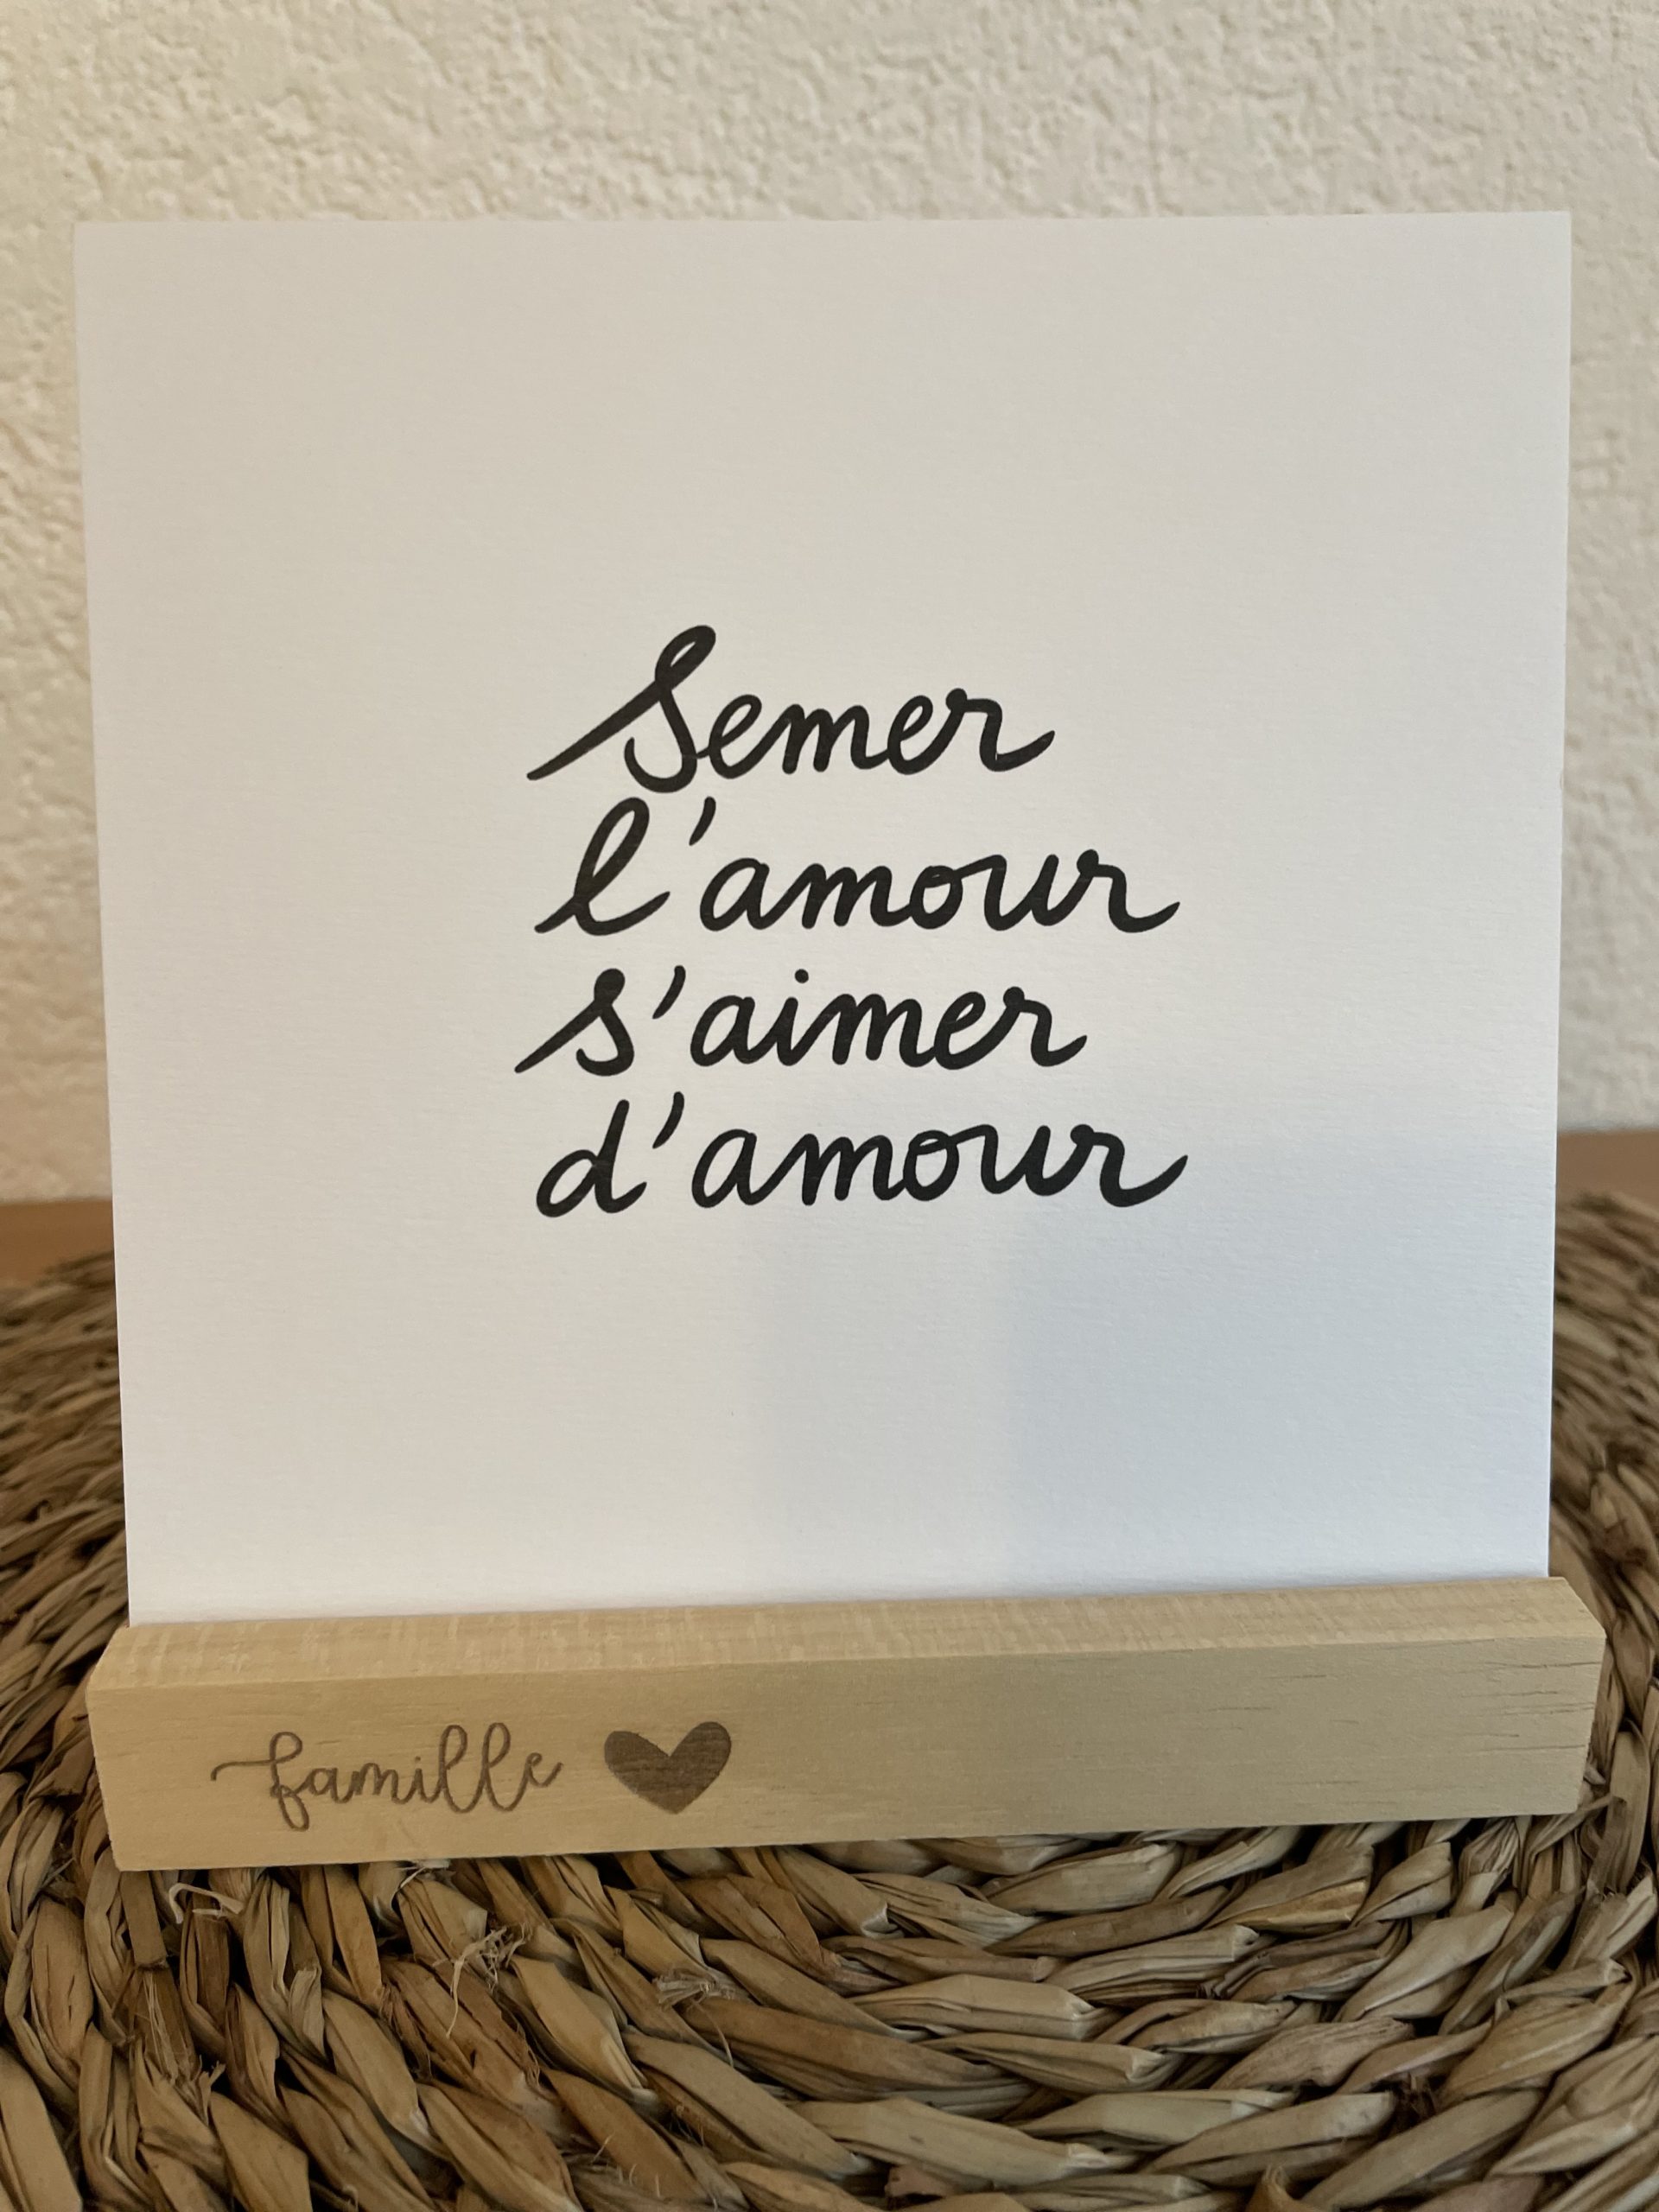 Semer
l'amour
s'aimer
d'amour
famille